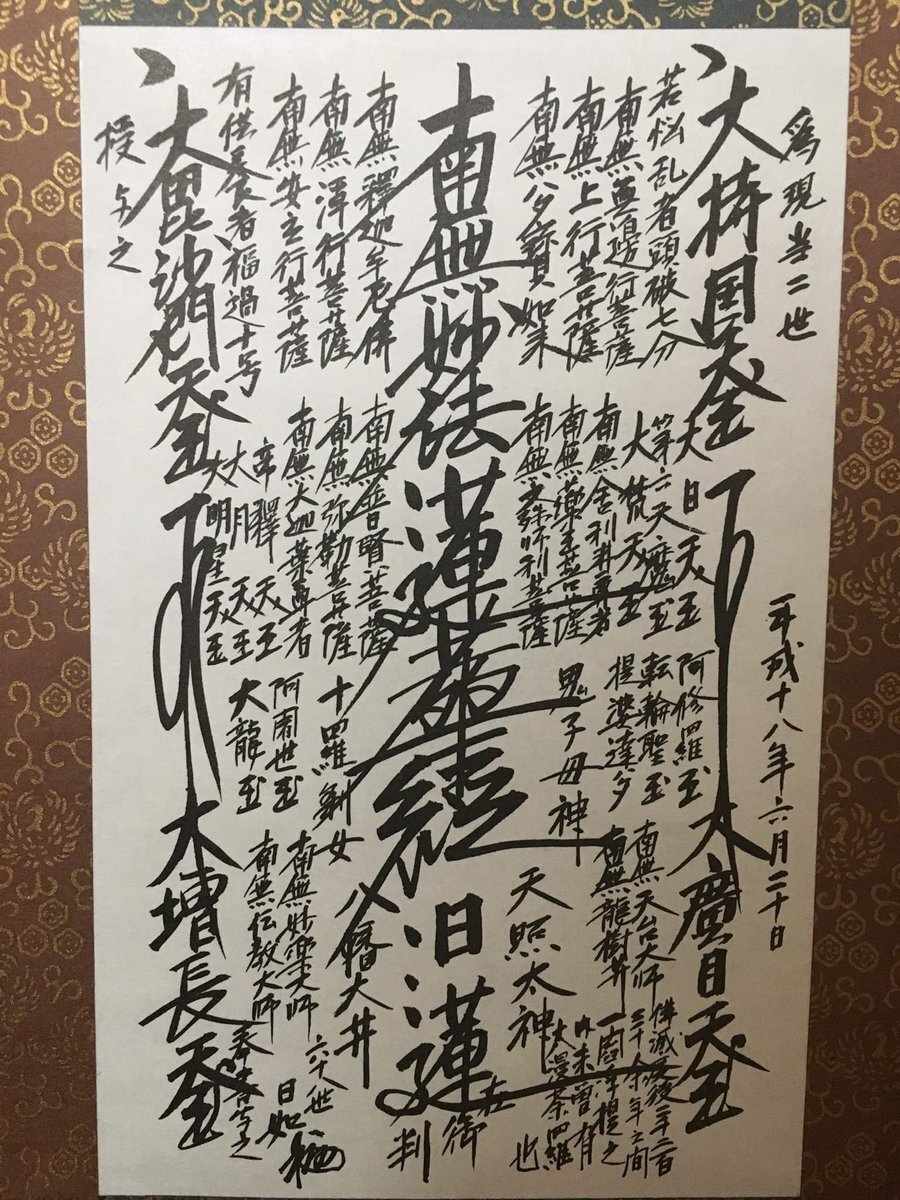 為現当二世
大持国天王
若悩乱者頭破七分
南無無邊行菩薩
南無上行菩薩
南無多寳如来
南無妙法蓮華経
南無釋迦牟尼佛
南無浄行菩薩
南無安立行菩薩
有供養者福過十号
大毘沙門天王
授与之
大日天王
第六天魔王
大梵天王
南無舎利弗尊者
南無薬王菩薩
南無文殊師利菩薩
南無普賢菩薩
南無弥勒菩薩
南無大迦葉尊者
帝釋天王
大月天王
大明星天王
平成十八年六月二十日
阿修羅王
転輪聖王
提婆達多
鬼子母神
十羅刹女
阿闍世王
大龍王
大廣目天王
南無天台大師
南無龍樹菩薩
天照太神
日蓮
在御判
八幡大菩薩
南無妙楽大師
南無伝教大師
大増長天王
佛滅度後二千二百
三十余年之間
一閻浮提之
内未曾有
大漫荼羅
也
六十八世
日如
奉書写之